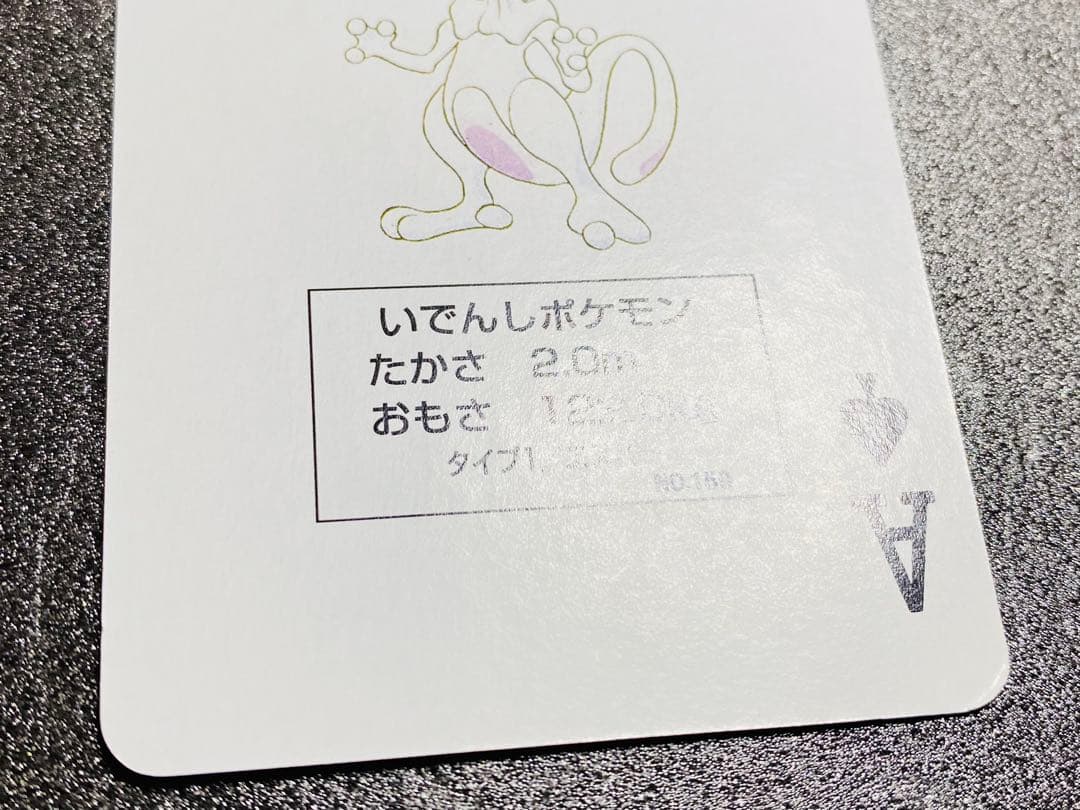 いでんしポケモン
たかさ 2.0m
おもさ
タイプ1
NO.150
A